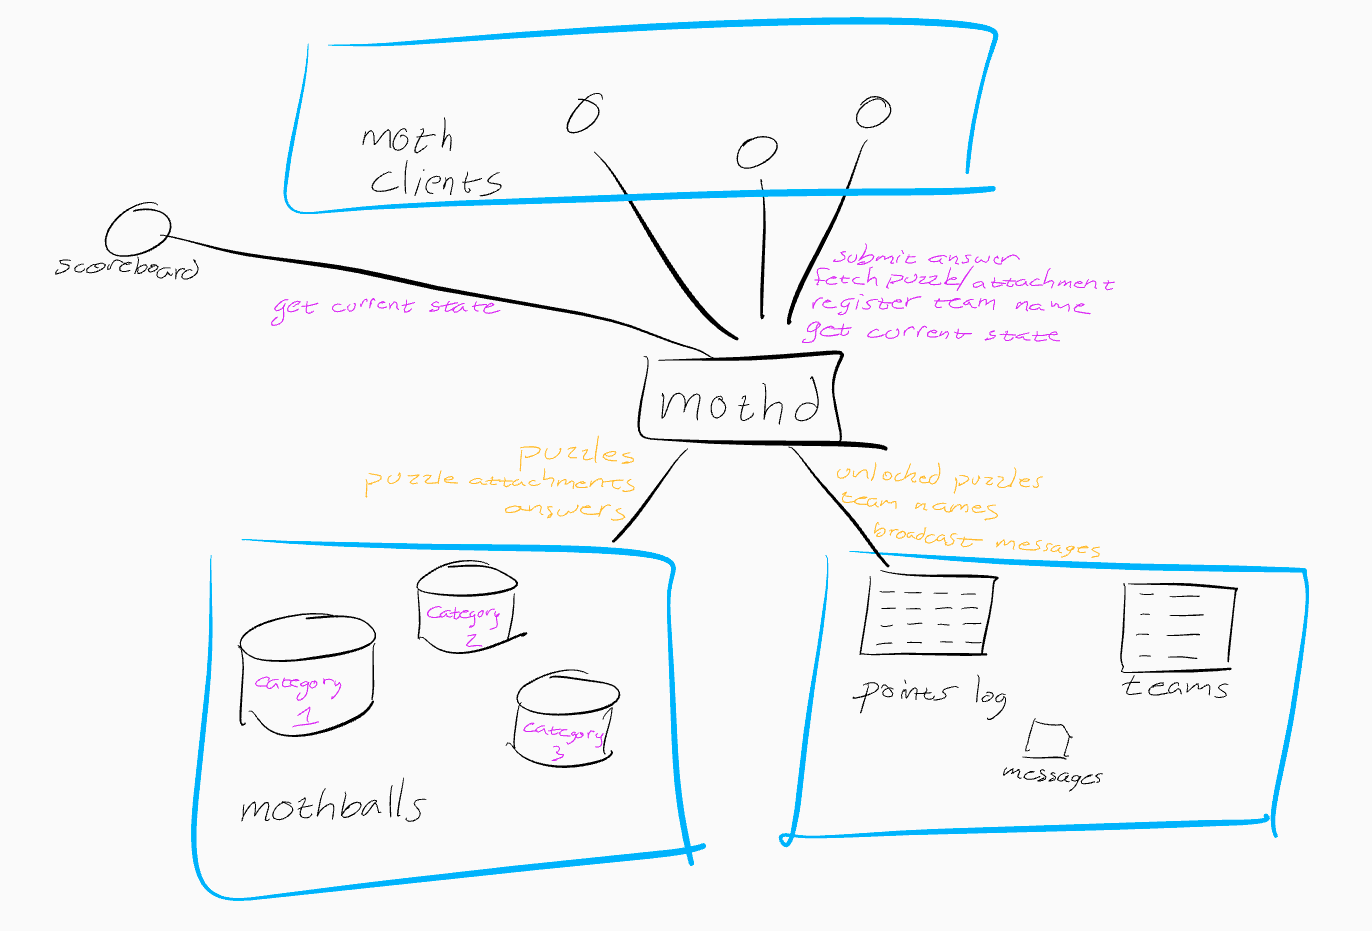 moth
clients
scoreboard
get current state
submit answer
fetch puzzle/attachment
register team name
get current state
mothd
puzzles
puzzle attachments
answers
unlocked puzzles
team names
broadcast messages
category
1
category
2
category
3
mothballs
points log
teams
messages